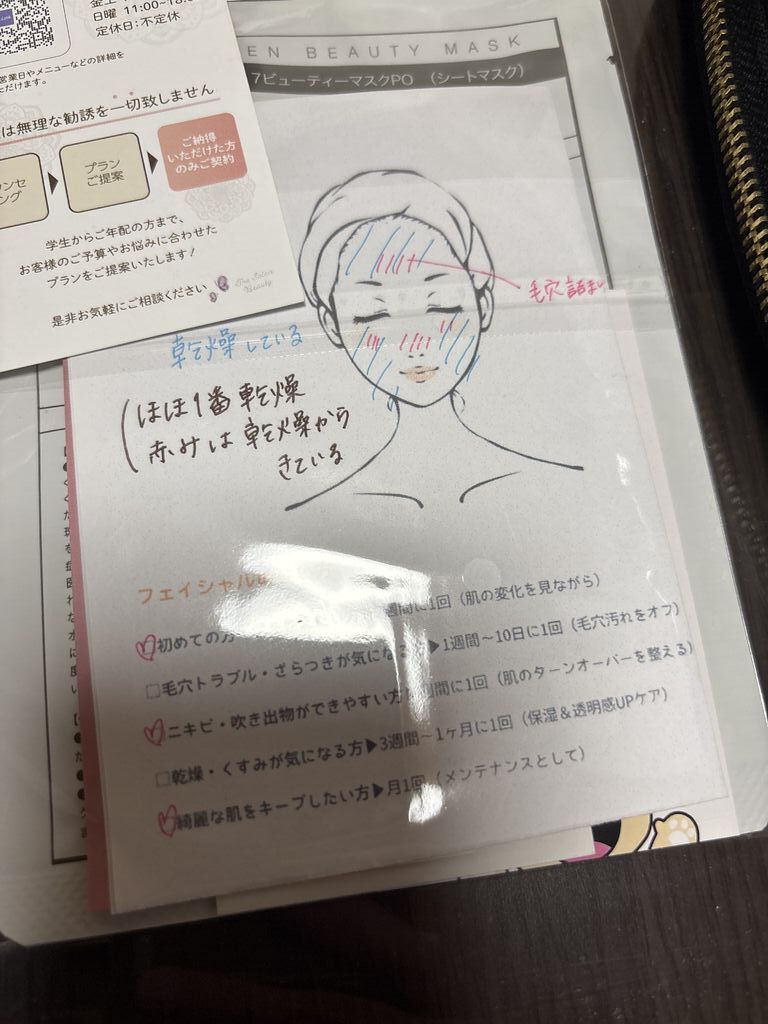 日曜 11:00~18:
定休日:不定休
営業日やメニューなどの詳細を
ただけます。
は無理な勧誘を一切致しません
プラン
ご提案
ご納得
いただけた方
のみご契約
学生からご年配の方まで、
お客様のご予算やお悩みに合わせた
プランをご提案いたします!
是非お気軽にご相談ください
The Salon
Beauty
EN BEAUTY MASK
7ビューティーマスクPO (シートマスク)
毛穴詰まり
乾燥している
ほほ1番乾燥
赤みは乾燥から
きている
フェイシャル
初めての方 週間に1回(肌の変化を見ながら)
□毛穴トラブル・ざらつきが気になる ▶1週間~10日に1回(毛穴汚れをオフ)
ニキビ・吹き出物ができやすい方 間に1回(肌のターンオーバーを整える)
□乾燥・くすみが気になる方▶3週間~1ヶ月に1回(保湿&透明感UPケア)
綺麗な肌をキープしたい方▶月1回(メンテナンスとして)